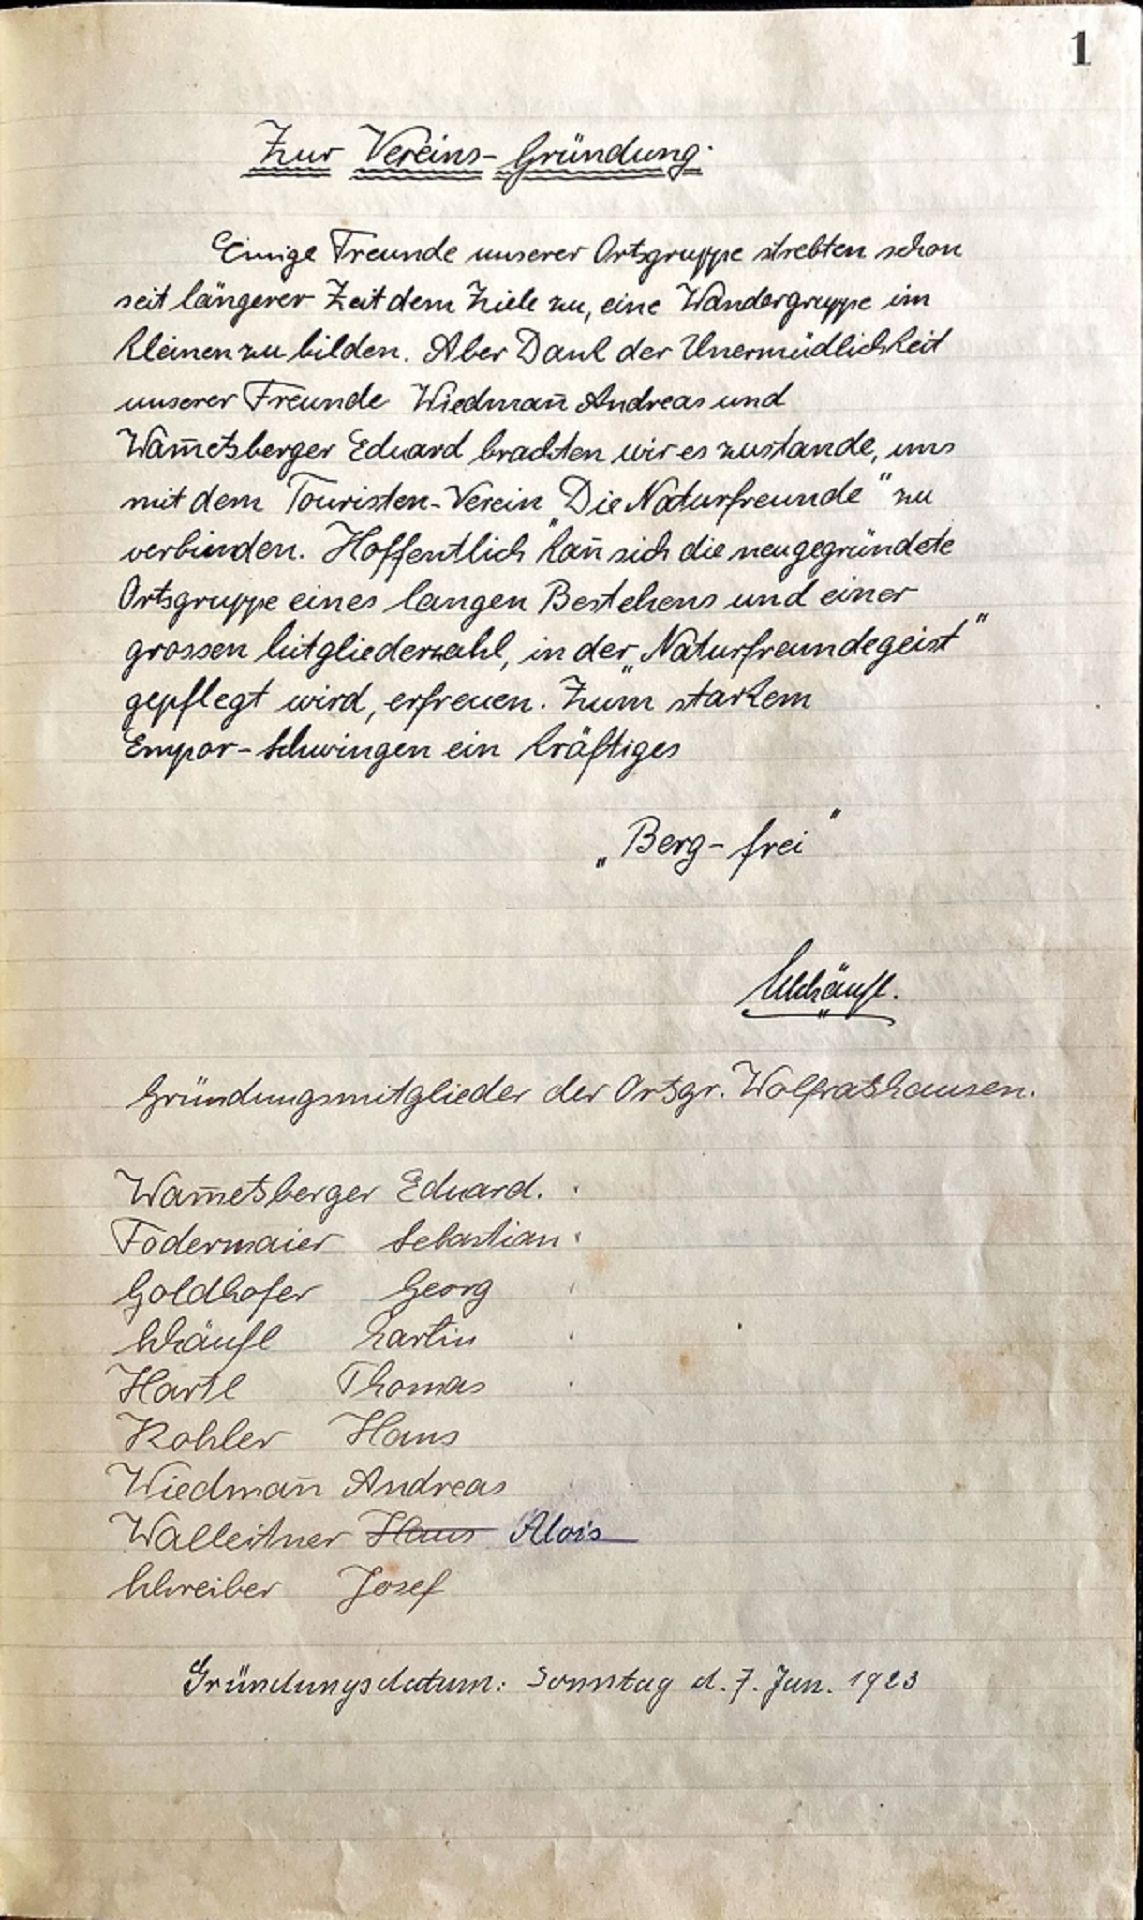 1
Zur Vereins-Gründung.
Einige Freunde unserer Ortsgruppe strebten schon
seit längerer Zeit dem Ziele zu, eine Wandergruppe im
kleinen zu bilden. Aber Dank der Unermüdlichkeit
unserer Freunde Wiedman̄ Andreas und
Wam̄etsberger Eduard brachten wir es zustande, uns
mit dem Touristen-Verein „Die Naturfreunde" zu
verbinden. Hoffentlich kan̄ sich die neugegründete
Ortsgruppe eines langen Bestehens und einer
grossen Mitgliederzahl, in der „Naturfreundegeist"
gepflegt wird, erfreuen. Zum starkem
Empor-Schwingen ein kräftiges
„Berg-frei"
Schäufl.
Gründungsmitglieder der Ortsgr. Wolfratshausen.
Wam̄etsberger Eduard.
Fodermaier Sebastian
Goldhofer Georg
Schäufl Martin
Hartl Thomas
Kohler Hans
Wiedman̄ Andreas
Walleitner Hans Alois
Schreiber Josef
Gründungsdatum: Sonntag d. 7. Jan. 1923